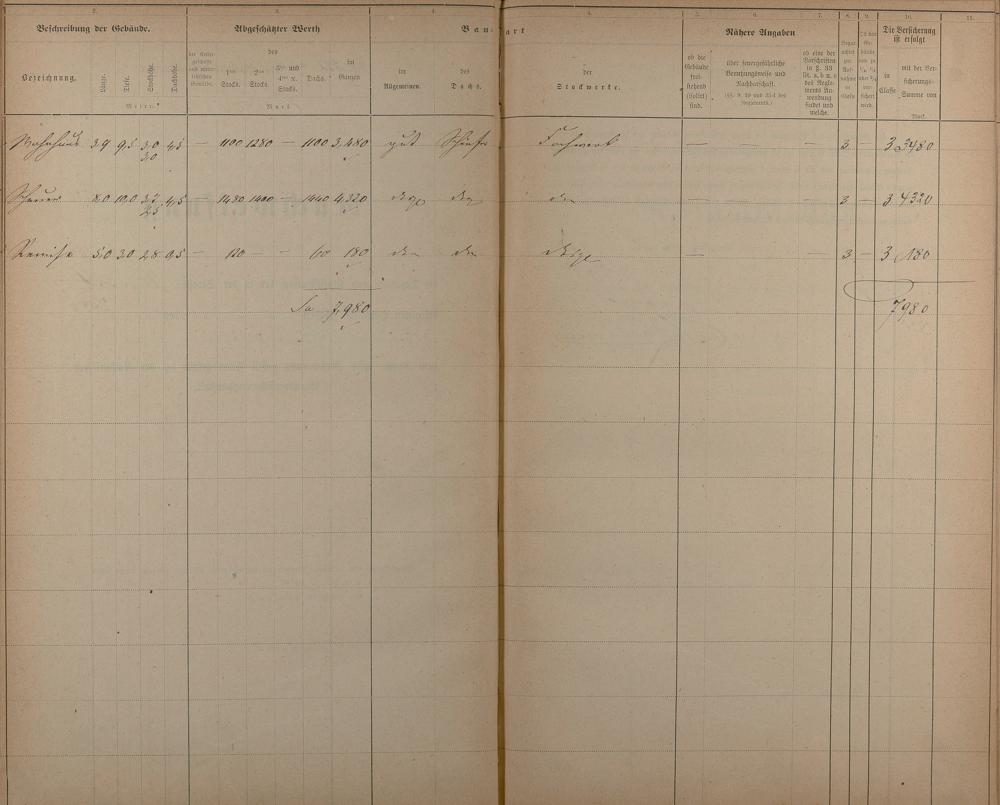 2. 3. 4. 4. 5. 6. 7. 8. 9. 10. 11.
Beschreibung der Gebäude. Abgeschätzter Werth Bauart Nähere Angaben Die Versicherung ist erfolgt
Bezeichnung. Länge. Tiefe. Stockhöhe. Dachhöhe. der 1ten Stocks. 2ten Stocks. 3ten und 4ten x. Stocks. Dachs. im Ganzen im Allgemeinen. des Dachs. der Stockwerke. ob die Gebäude freistehend (isolirt) sind. über feuergefährliche Benutzungsweise und Nachbarschaft. ob eine der Vorschriften in § 33 des Reglements Anwendung findet und welche. in Classe mit der Versicherungs-Summe von
Meter. Mark. Mark.
Wohnhaus 3,9 9,5 3,0 3,0 4,5 — 1100 1280 — 1100 3,480 gut Schiefer Fachwerk — — — 3 — 3 3480
Scheuer 8,0 10,0 3,7 2,5 4,5 — 1480 1400 — 1440 4,320 — — — 3 — 3 4320
Remise 5,0 3,0 2,8 0,5 — 120 — — 60 180 — — 3 — 3 180
Sa 7,980 7980